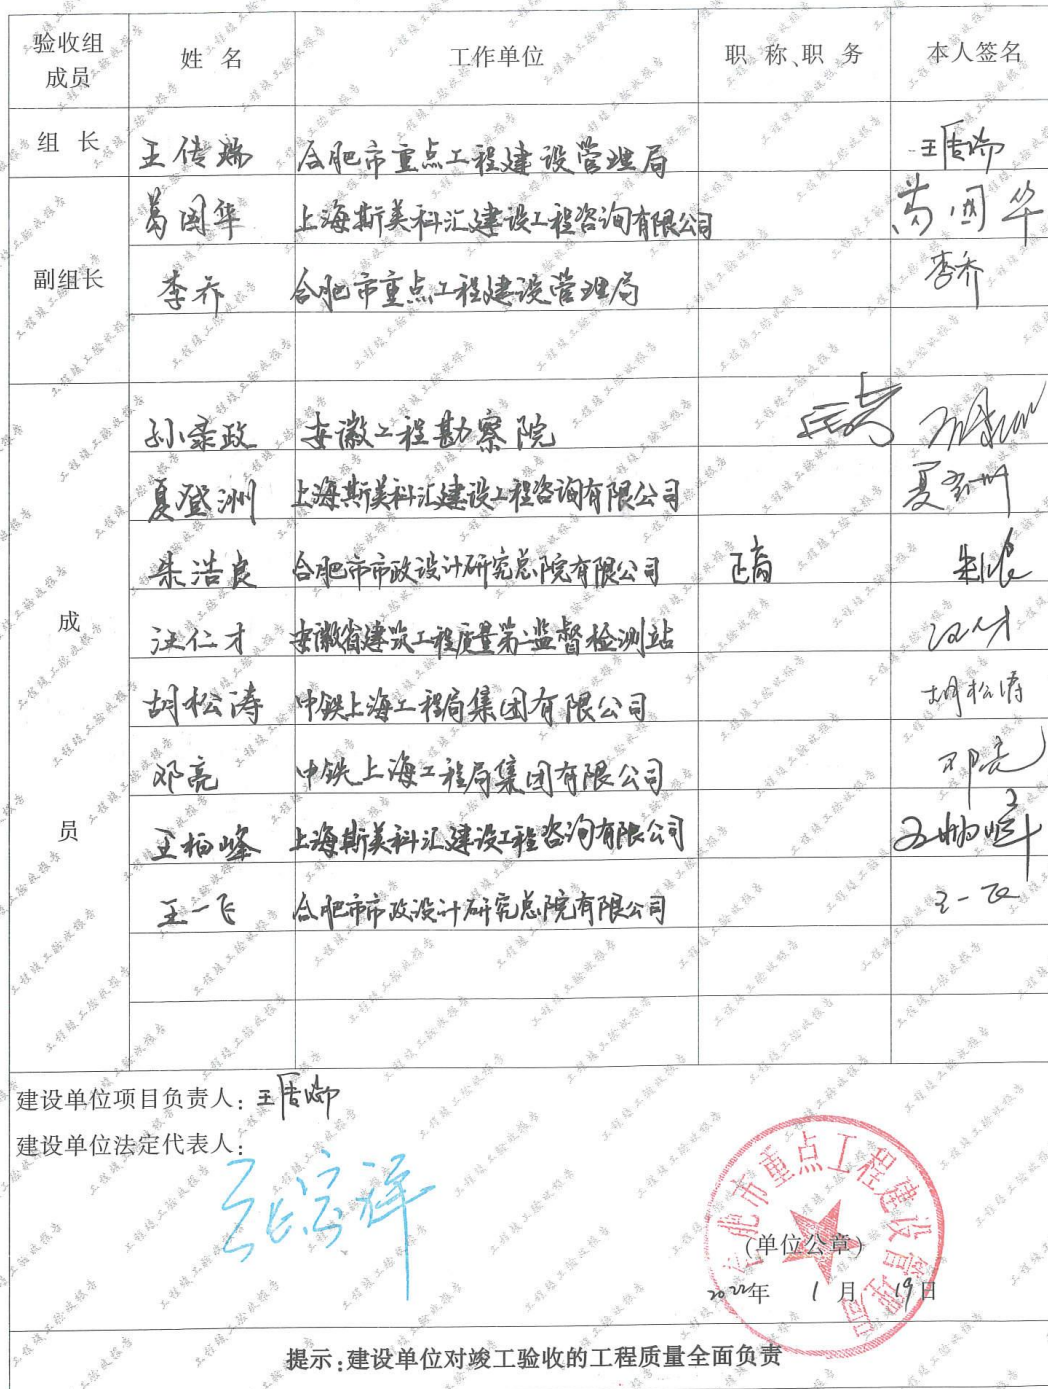 验收组成员 姓 名 工作单位 职 称、职 务 本人签名
组 长 王传瑞 合肥市重点工程建设管理局 王传瑞
副组长 葛国华 上海斯美科汇建设工程咨询有限公司 葛国华
李乔 合肥市重点工程建设管理局 李乔
成员 孙录政 安徽工程勘察院
夏登洲 上海斯美科汇建设工程咨询有限公司 夏登洲
朱浩良 合肥市市政设计研究总院有限公司 正高
汪仁才 安徽省建筑工程质量第二监督检测站 汪仁才
胡松涛 中铁上海工程局集团有限公司 胡松涛
邓亮 中铁上海工程局集团有限公司 邓亮
王柏峰 上海斯美科汇建设工程咨询有限公司 王柏峰
王一飞 合肥市市政设计研究总院有限公司 王一飞
建设单位项目负责人：王传瑞
建设单位法定代表人：
合肥市重点工程建设管理局
（单位公章）
2022年 1月 19日
提示：建设单位对竣工验收的工程质量全面负责
工程竣工验收报告